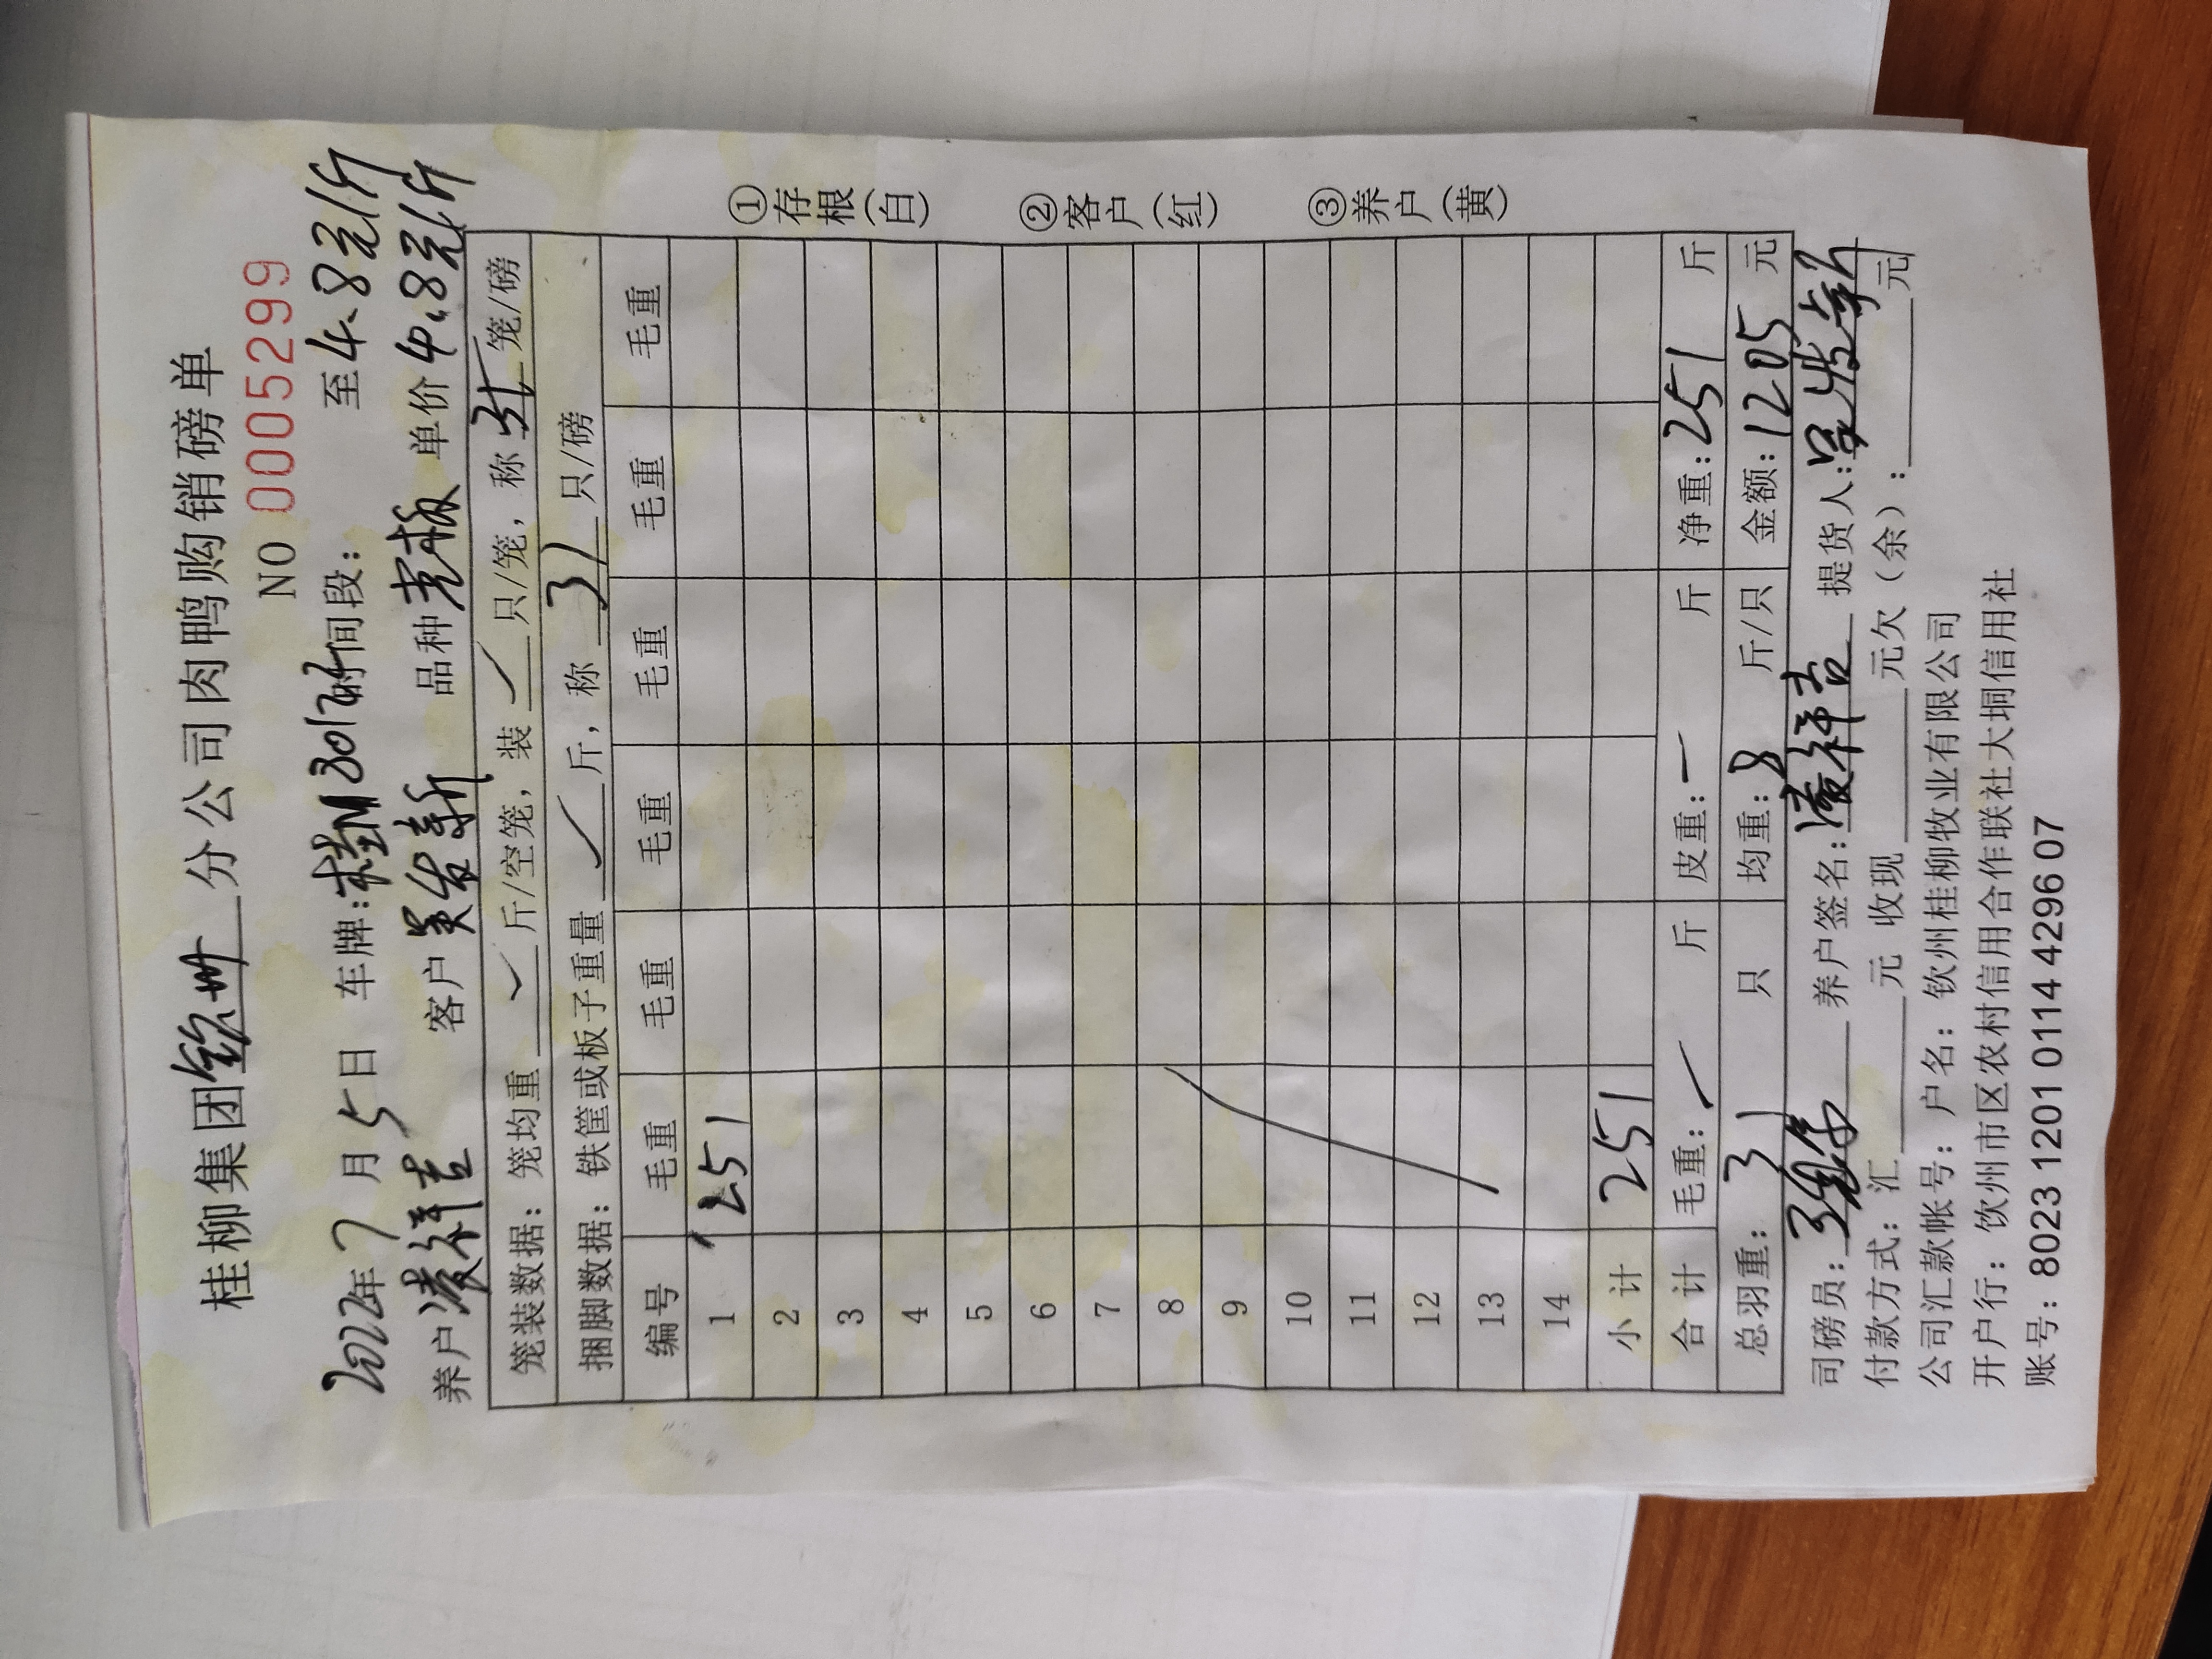 桂柳集团钦州分公司肉鸭购销磅单
NO 0005299
2022年7月5日 车牌:桂M3017时间段: 至4.8元/斤
养户凌祥吉 客户吴发新 品种 单价4.8元/斤
笼装数据: 笼均重 斤/空笼, 装 只/笼, 称 笼/磅
捆脚数据: 铁筐或板子重量 斤, 称 31 只/磅
编号 毛重 毛重 毛重 毛重 毛重 毛重
1 251
2
3
4
5
6
7
8
9
10
11
12
13
14
小计 251
合计 毛重: 斤 皮重: 斤 净重: 251 斤
总羽重: 31 只 均重: 8 斤/只 金额: 1205 元
司磅员: 养户签名: 凌祥吉 提货人: 吴发新
付款方式: 汇 元 收现 元欠(余): 元
公司汇款帐号: 户名: 钦州桂柳牧业有限公司
开户行: 钦州市区农村信用合作联社大垌信用社
账号: 8023 1201 0114 4296 07
①存根(白) ②客户(红) ③养户(黄)